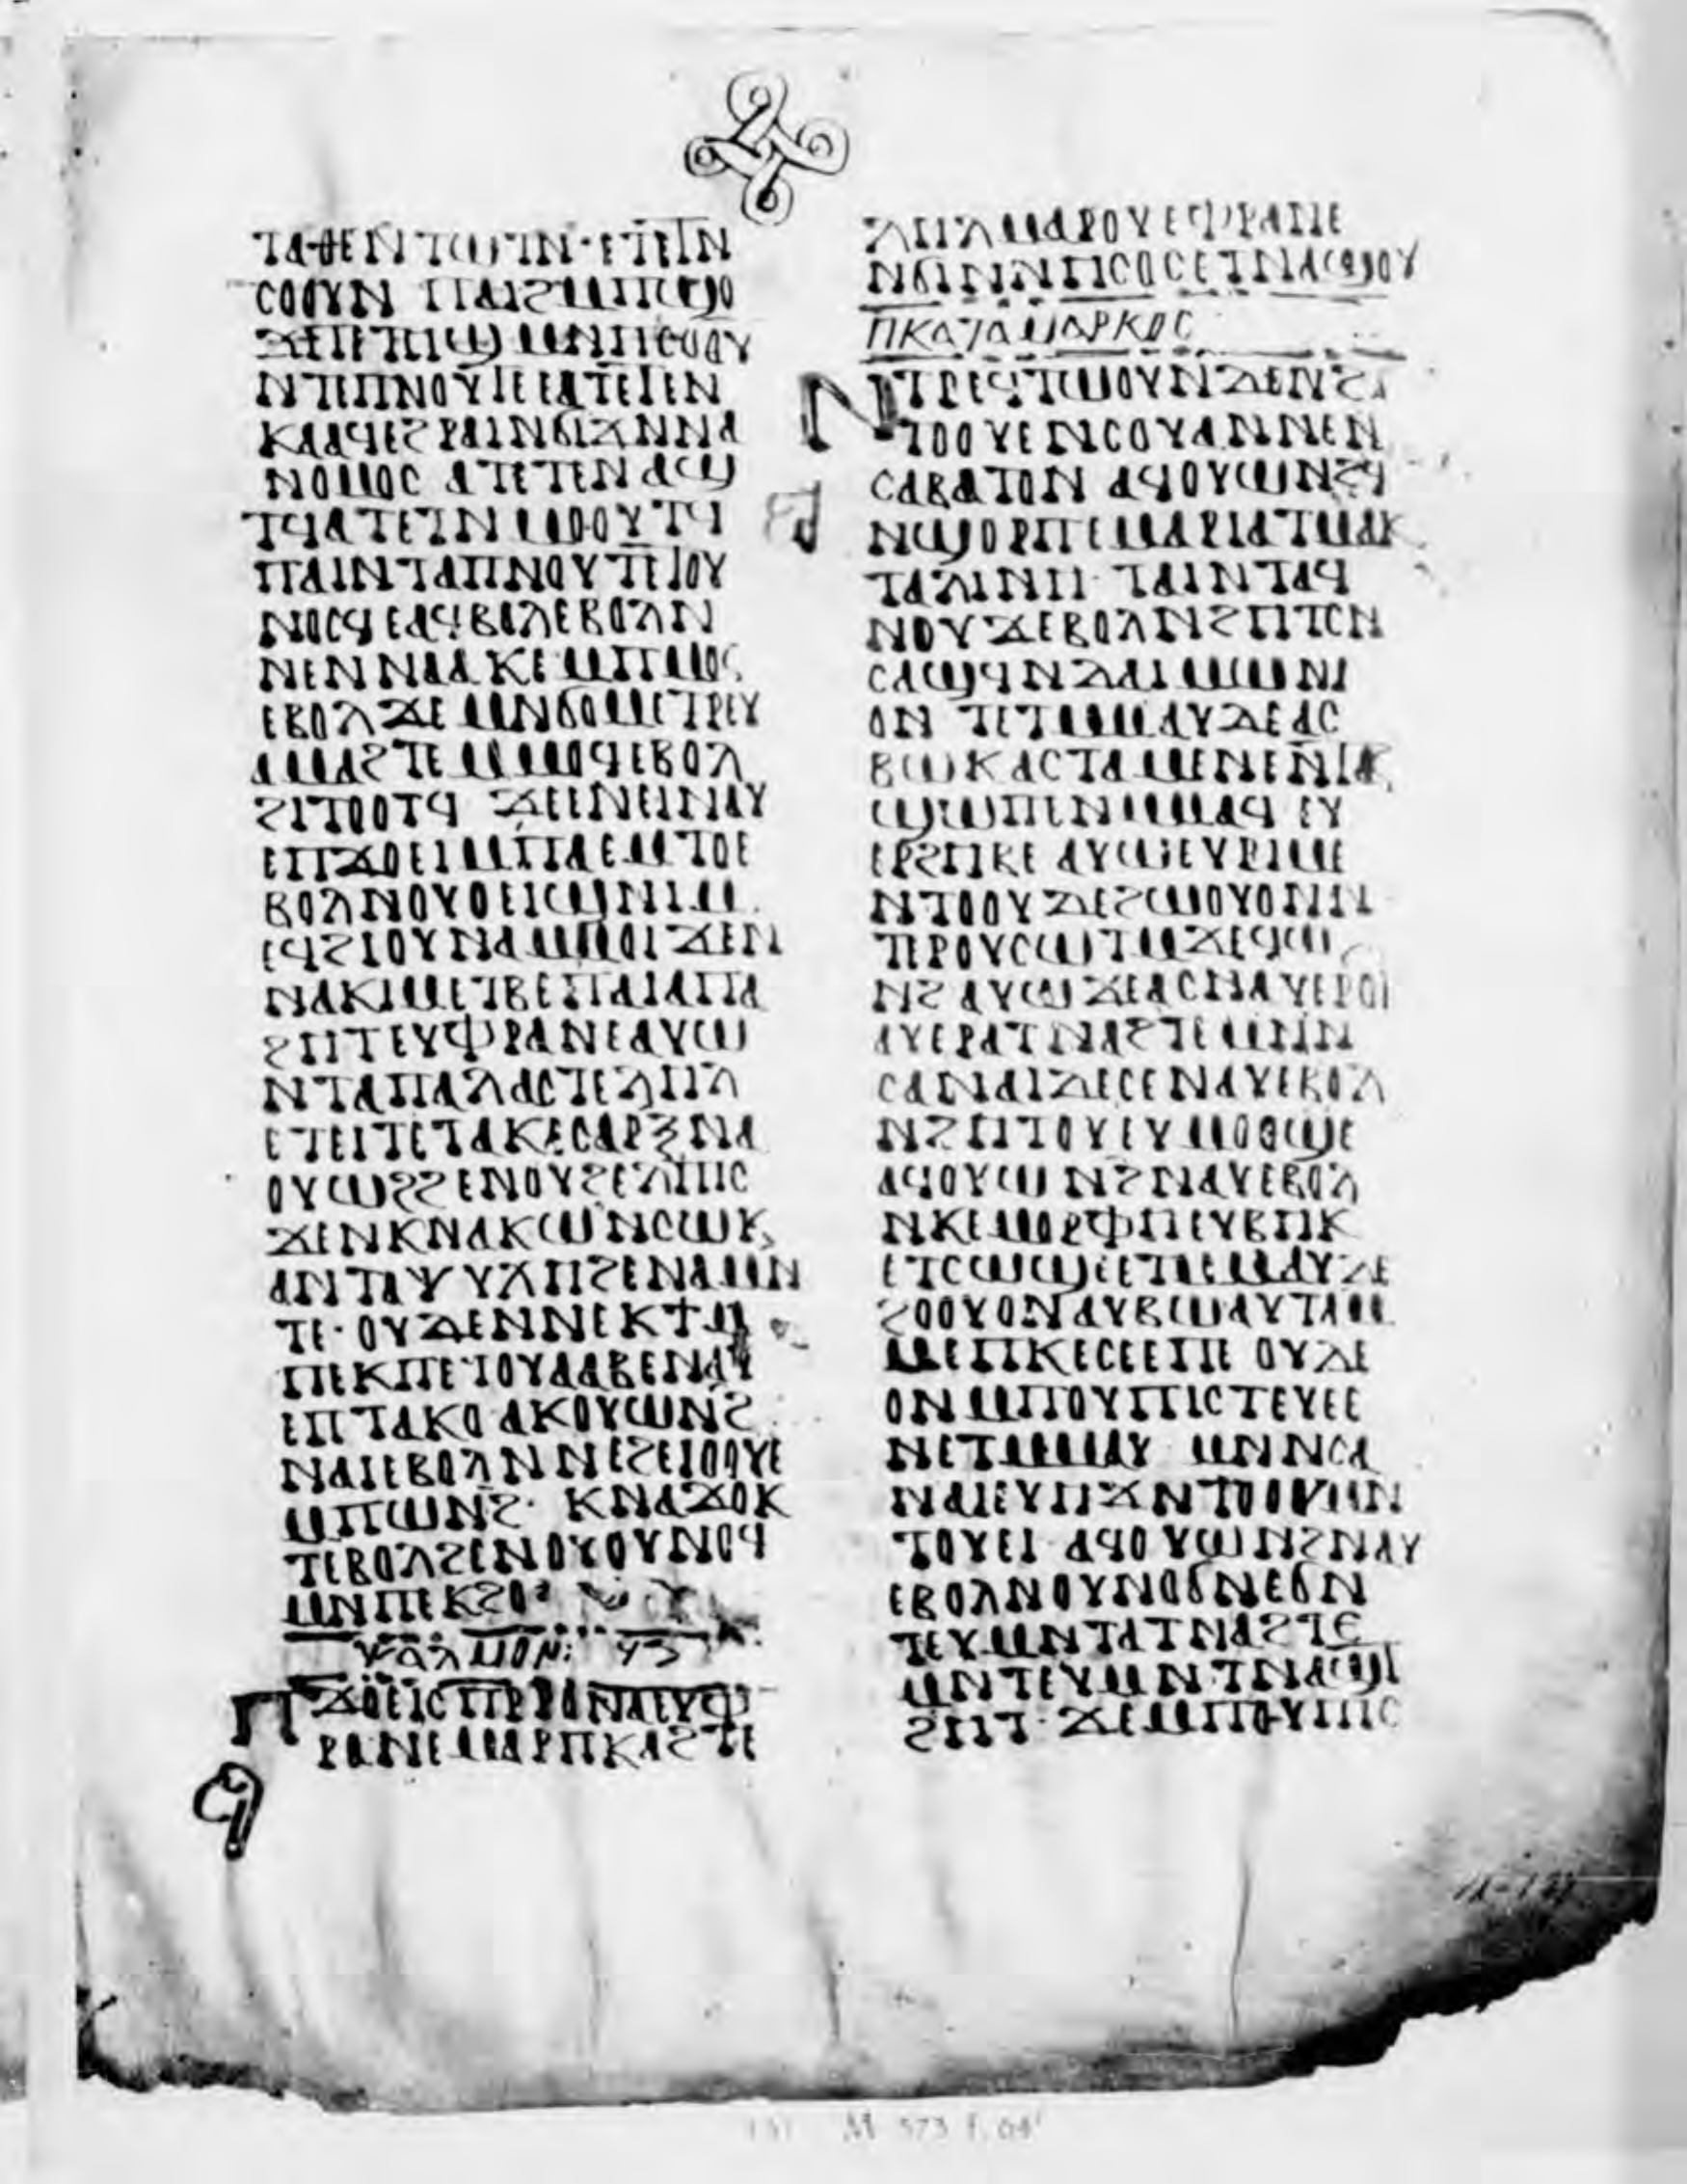 ⲧⲁϩⲉⲛⲧⲱⲧⲛ· ⲉⲧⲉⲧⲛ
ⲥⲟⲟⲩⲛ ⲡⲁⲓϩⲙⲡϣⲟ
ϫⲛⲡⲉⲧⲛϣ ⲙⲛⲡⲥⲟⲟⲩ
ⲛⲧⲉⲡⲛⲟⲩⲧⲉ ⲉⲁⲧⲉⲧⲉⲛ
ⲕⲁⲁϥⲉϩⲣⲁⲓⲛϭⲓϫⲛⲛⲁ
ⲛⲟⲙⲟⲥ ⲁⲧⲉⲧⲉⲛⲁϣ
ⲧϥⲁⲧⲉⲧⲛⲙⲟⲟⲩⲧϥ
ⲡⲁⲓⲛⲧⲁⲡⲛⲟⲩⲧⲉⲧⲟⲩ
ⲛⲟⲥϥ ⲉⲁϥⲃⲱⲗⲉⲃⲟⲗⲛ
ⲛⲉⲛⲛⲁⲁⲕⲉⲙⲡⲙⲟⲩ
ⲉⲃⲟⲗϫⲉ ⲙⲛϭⲟⲙⲉⲧⲣⲉⲩ
ⲁⲙⲁϩⲧⲉ ⲙⲙⲟϥⲉⲃⲟⲗ
ϩⲓⲧⲟⲟⲧϥ ϫⲉⲉⲛⲉⲓⲛⲁⲩ
ⲉⲡϫⲟⲉⲓⲙⲡⲁⲉⲙⲧⲟⲉ
ⲃⲟⲗⲛⲟⲩⲟⲉⲓϣⲛⲓⲙ
ⲉϥϩⲓⲟⲩⲛⲁⲙⲙⲟⲓ ϫⲉⲛ
ⲛⲁⲕⲓⲙ ⲉⲧⲃⲉⲡⲁⲓⲁⲡⲁ
ϩⲏⲧⲉⲩⲫⲣⲁⲛⲉⲁⲩⲱ
ⲛⲧⲁⲡⲁⲗⲁⲥⲧⲉⲗⲏⲗ
ⲉⲧⲉⲓⲧⲉⲧⲁⲕⲉⲥⲁⲣⲝⲛⲁ
ⲟⲩⲱϩϩⲉⲛⲟⲩϩⲉⲗⲡⲓⲥ
ϫⲉⲛⲕⲛⲁⲕⲱⲛⲥⲱⲕ
ⲁⲛⲧⲁⲯⲩⲭⲏϩⲉⲛⲁⲙⲛ
ⲧⲉ· ⲟⲩⲇⲉⲛⲛⲉⲕϯⲙ
ⲡⲉⲕⲡⲉⲧⲟⲩⲁⲁⲃⲉⲛⲁⲩ
ⲉⲡⲧⲁⲕⲟ ⲁⲕⲟⲩⲱⲛϩ
ⲛⲁⲓⲉⲃⲟⲗⲛⲛⲉϩⲉⲓⲟⲟⲩⲉ
ⲙⲡⲱⲛϩ· ⲕⲛⲁϫⲟⲕ
ⲧⲉⲃⲟⲗϩⲉⲛⲟⲩⲟⲩⲛⲟϥ
ⲙⲛⲡⲉⲕϩⲟ
ⲯⲁⲗⲙⲟⲛ: ϥⲋ
ⲡϫⲟⲉⲓⲥⲡⲣⲣⲟⲙⲁⲣⲉⲩⲫ
ⲣⲁⲛⲉ ⲙⲁⲣⲡⲕⲁϩⲧⲉ
ⲗⲏⲗ ⲙⲁⲣⲟⲩⲉⲩⲫⲣⲁⲛⲉ
ⲛϭⲓⲛⲛⲏⲥⲟⲥ ⲉⲧⲛⲁϣⲟⲩ
ⲡⲕⲁⲧⲁⲙⲁⲣⲕⲟⲥ
ⲛⲧⲣⲉϥⲧⲱⲟⲩⲛⲇⲉⲛϩⲧ
ⲧⲟⲟⲩⲉⲛⲥⲟⲩⲁⲛⲛⲉⲛ
ⲥⲁⲃⲁⲧⲟⲛ ⲁϥⲟⲩⲱⲛϩϥ
ⲛϣⲟⲣⲡⲉⲙⲁⲣⲓⲁⲧⲙⲁⲕ
ⲧⲁⲗⲓⲛⲏ· ⲧⲁⲓⲛⲧⲁϥ
ⲛⲟⲩϫⲉⲃⲟⲗⲛϩⲏⲧⲥⲛ
ⲥⲁϣϥⲛⲇⲁⲓⲙⲱⲛⲓ
ⲟⲛ ⲧⲉⲧⲙⲙⲁⲩⲇⲉⲁⲥ
ⲃⲱⲕ ⲁⲥⲧⲁⲙⲉⲛⲉⲛⲧⲁⲩ
ϣⲱⲡⲉⲛⲙⲙⲁϥ ⲉⲩ
ⲉⲣϩⲏⲃⲉ ⲁⲩⲱⲉⲩⲣⲓⲙⲉ
ⲛⲧⲟⲟⲩⲇⲉϩⲱⲟⲩⲟⲛⲛ
ⲧⲉⲣⲟⲩⲥⲱⲧⲙϫⲉϥⲱ
ⲛϩ ⲁⲩⲱϫⲉⲁⲥⲛⲁⲩⲉⲣⲟϥ
ⲁⲩⲉⲣⲁⲧⲛⲁϩⲧⲉ ⲙⲛⲛ
ⲥⲁⲛⲁⲓⲇⲉⲥⲉⲛⲁⲩⲉⲃⲟⲗ
ⲛϩⲏⲧⲟⲩⲉⲩⲙⲟⲟϣⲉ
ⲁϥⲟⲩⲱⲛϩⲛⲁⲩⲉⲃⲟⲗ
ⲛⲕⲉⲙⲟⲣⲫⲏⲉⲩⲃⲏⲕ
ⲉⲧⲥⲱϣⲉⲉⲧⲉⲙⲙⲁⲩⲇⲉ
ϩⲟⲟⲩⲟⲛⲁⲩⲃⲱⲁⲩⲧⲁⲙ
ⲙⲉⲡⲕⲉⲥⲉⲉⲡⲉ ⲟⲩⲇⲉ
ⲟⲛⲙⲡⲟⲩⲡⲓⲥⲧⲉⲩⲉⲉ
ⲛⲉⲧⲙⲙⲁⲩ ⲙⲛⲛⲥⲁ
ⲛⲁⲓⲉⲩⲏϫⲛⲧⲟⲟⲩⲙⲛ
ⲧⲟⲩⲉⲓ ⲁϥⲟⲩⲱⲛϩⲛⲁⲩ
ⲉⲃⲟⲗⲛⲟⲩⲛⲟϭⲛⲉϭⲛ
ⲧⲉⲩⲙⲛⲧⲁⲧⲛⲁϩⲧⲉ
ⲙⲛⲧⲉⲩⲙⲛⲧⲛⲁϣⲧ
ϩⲏⲧ· ϫⲉⲙⲡⲟⲩⲡⲓⲥ
ϥ
M 573 f. 64